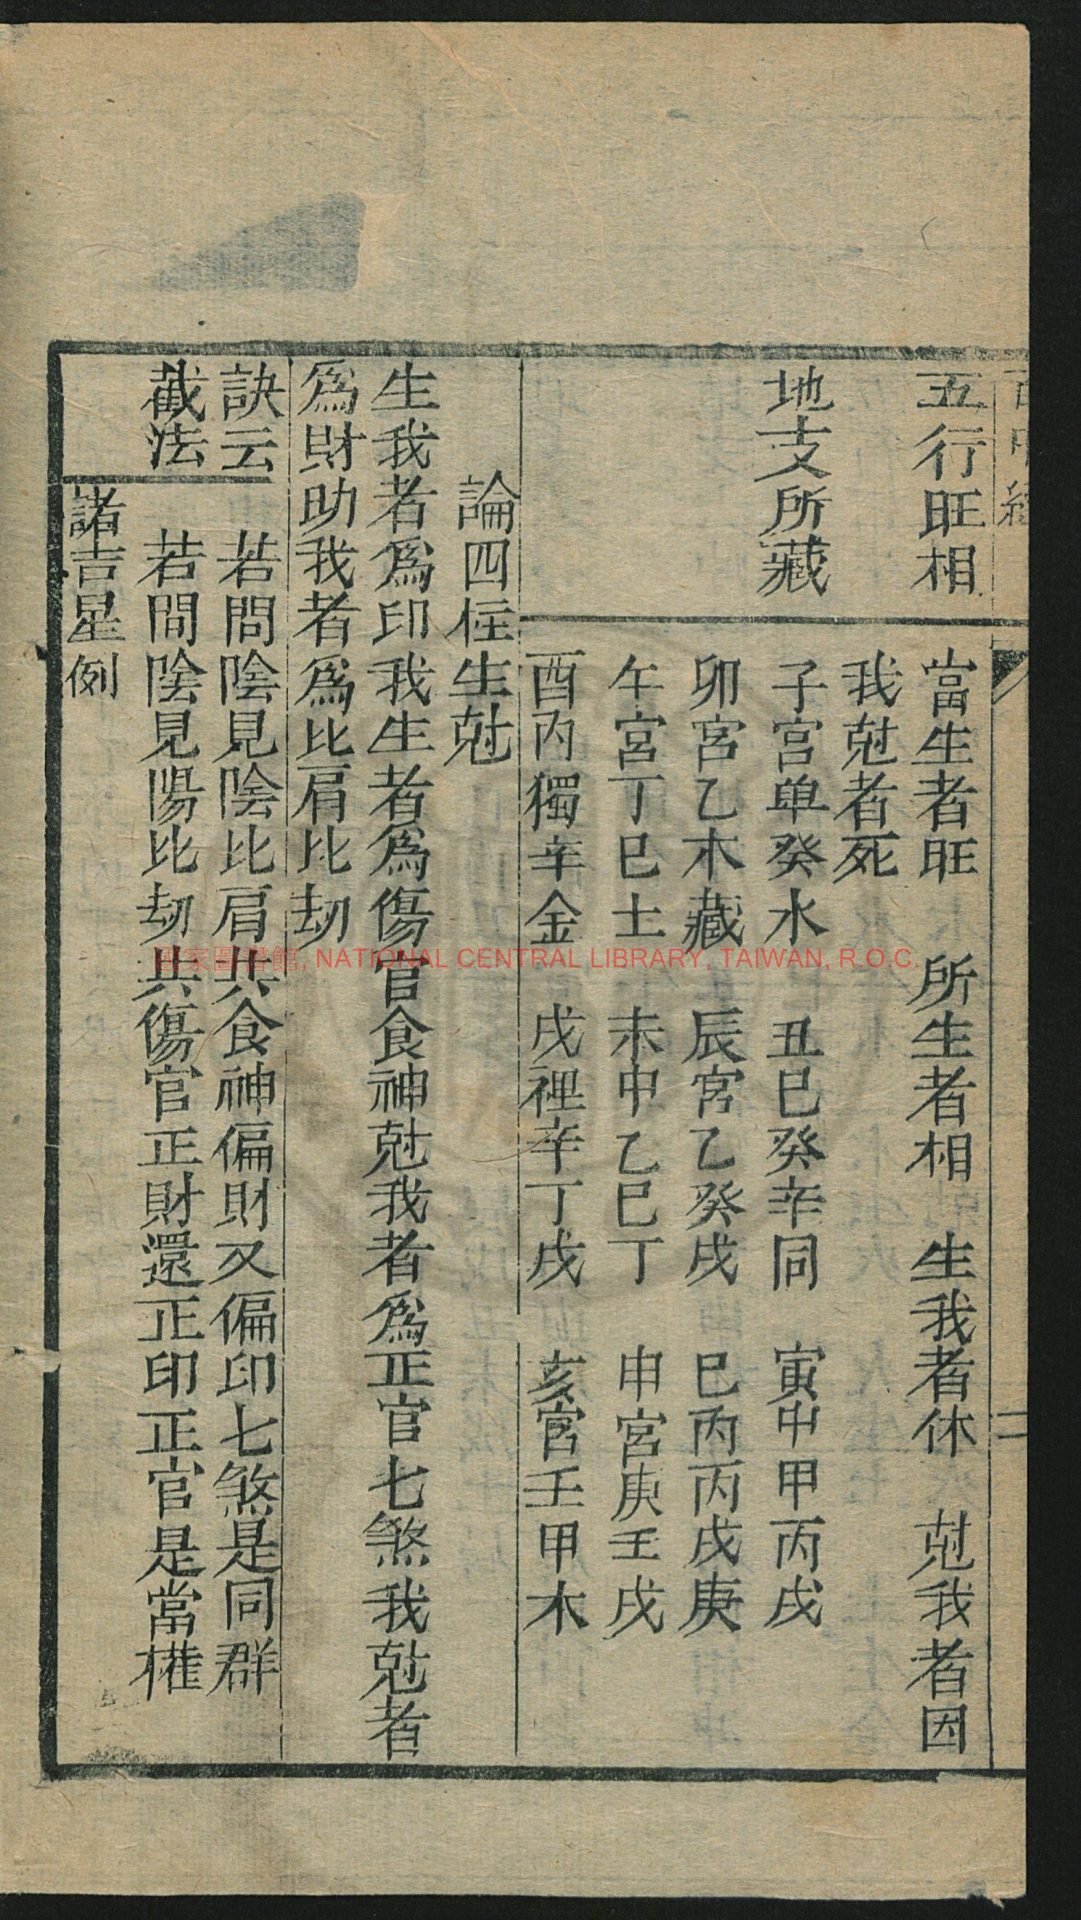 五行旺相
當生者旺　所生者相　生我者休　尅我者因
我尅者死
地支所藏
子宮单癸水　丑巳癸辛同　寅中甲丙戌
卯宮乙木藏　辰宮乙癸戌　巳丙丙戌庚
午宮丁巳土　未中乙巳丁　申宮庚壬戌
酉内獨辛金　戌裡辛丁戌　亥宮壬甲木
論四柱生尅
生我者為印我生者為傷官食神尅我者為正官七煞我尅者
為財助我者為比肩比刼
訣云　若問陰見陰比肩共食神偏財又偏印七煞是同群
截法　若間陰見陽比刼共傷官正財還正印正官是當權
諸吉星例
二
國家圖書館, NATIONAL CENTRAL LIBRARY, TAIWAN, R.O.C.